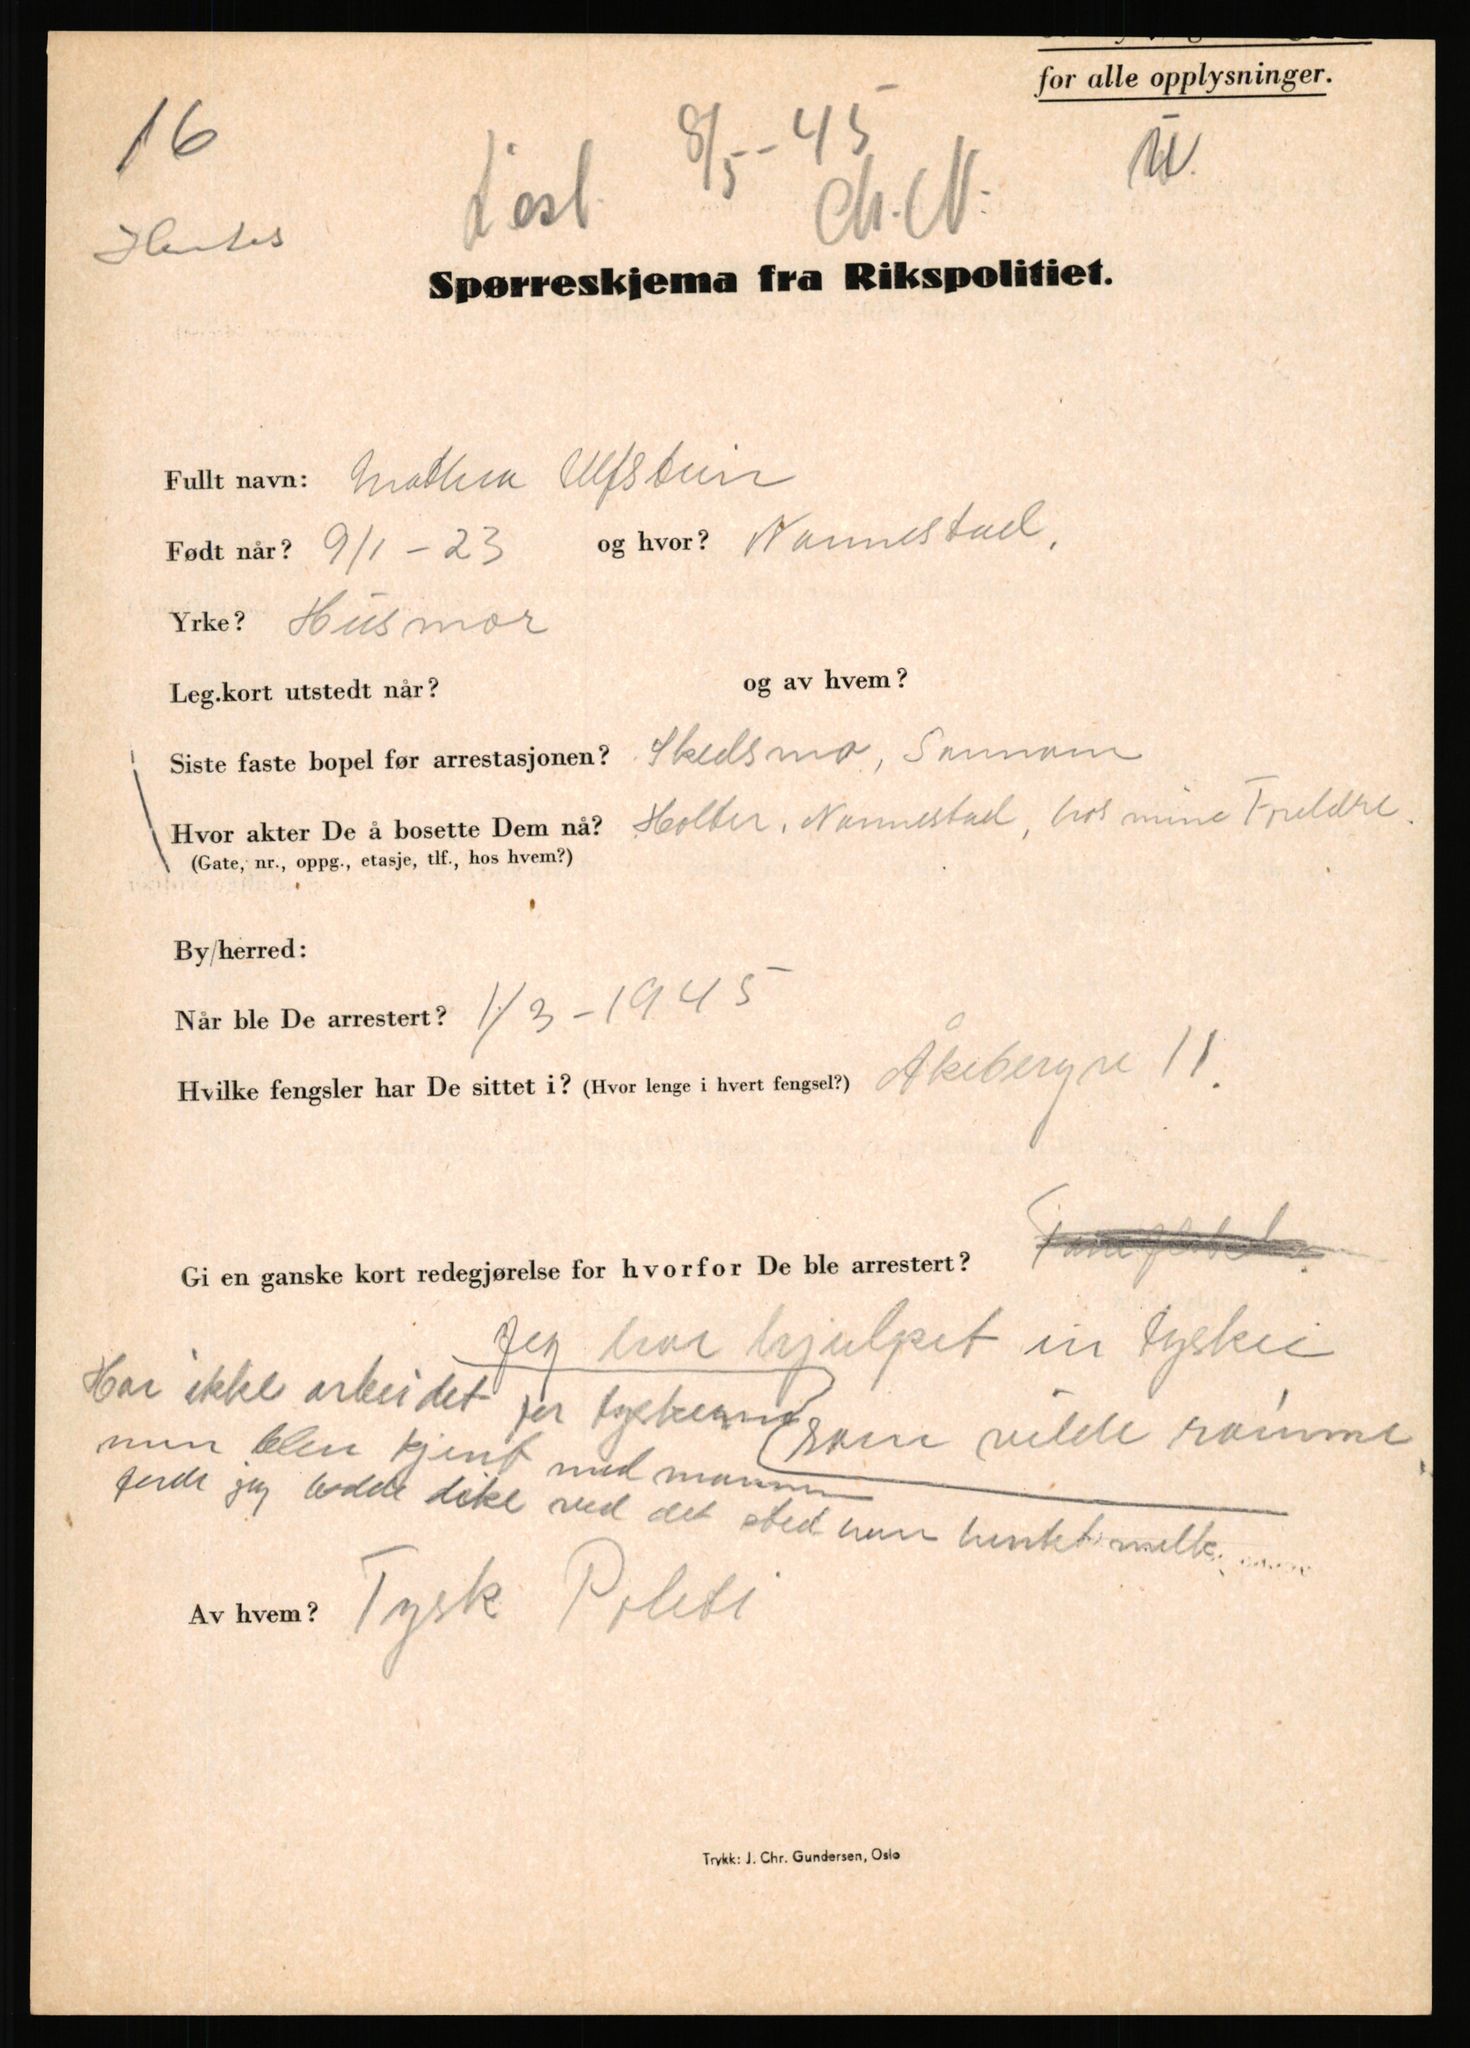 for alle opplysninger.
16
Løsl. 8/5-45
Ch. N.
Hentes
Spørreskjema fra Rikspolitiet.
Fullt navn: Mathea Ulfstein
Født når? 9/1-23 og hvor? Nannestad.
Yrke? Husmor
Leg.kort utstedt når? og av hvem?
Siste faste bopel før arrestasjonen? Skedsmo,
Hvor akter De å bosette Dem nå? Holter, Nannestad, hos mine Foreldre.
(Gate, nr., oppg., etasje, tlf., hos hvem?)
By/herred:
Når ble De arrestert? 1/3-1945
Hvilke fengsler har De sittet i? (Hvor lenge i hvert fengsel?) Åkebergve 11.
Gi en ganske kort redegjørelse for hvorfor De ble arrestert?
Jeg har hjulpet en tysker
som vilde rømme
Har ikke arbeidet for tyskerne
men blev kjent med mannen
forde jeg bodde like ved det sted han hentet melk.
Av hvem? Tysk Politi
Trykk: J. Chr. Gundersen, Oslo